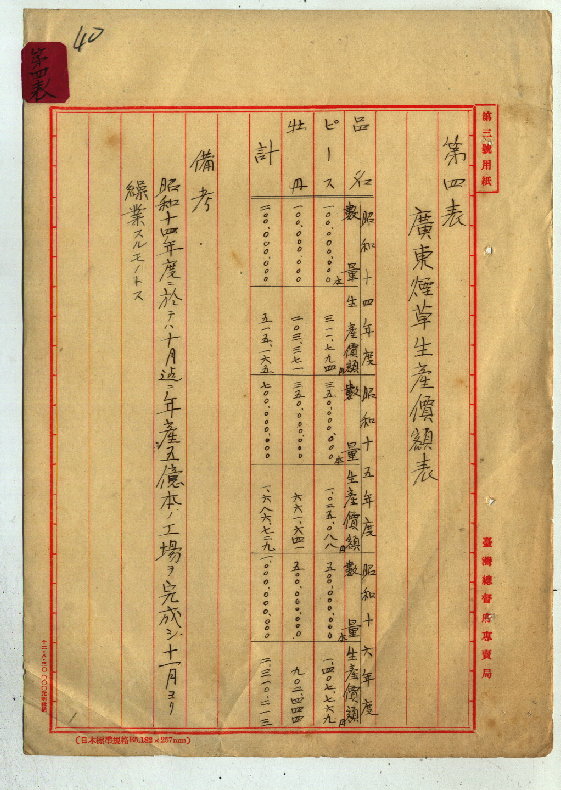 40
第四表
第三號用紙
第四表
廣東煙草生產價額表
品名 昭和十四年度 昭和十五年度 昭和十六年度
數量 生產價額 數量 生產價額 數量 生產價額
ピース 一〇〇,〇〇〇,〇〇〇本 三一一,七九四円 三五〇,〇〇〇,〇〇〇本 一,〇二五,〇八八円 五〇〇,〇〇〇,〇〇〇本 一,四〇七,七六九円
牡丹 一〇〇,〇〇〇,〇〇〇 二〇三,三七一 三五〇,〇〇〇,〇〇〇 六六一,六四一 五〇〇,〇〇〇,〇〇〇 九〇二,四四四
計 二〇〇,〇〇〇,〇〇〇 五一五,一六五 七〇〇,〇〇〇,〇〇〇 一,六八六,七二九 一,〇〇〇,〇〇〇,〇〇〇 二,三一〇,二一三
備考
昭和十四年度ニ於テハ十月迄ニ年產五億本ノ工場ヲ完成シ十一月ヨリ
繰業スルモノトス
臺灣總督府專賣局
(日本標準規格B5.182×257mm)